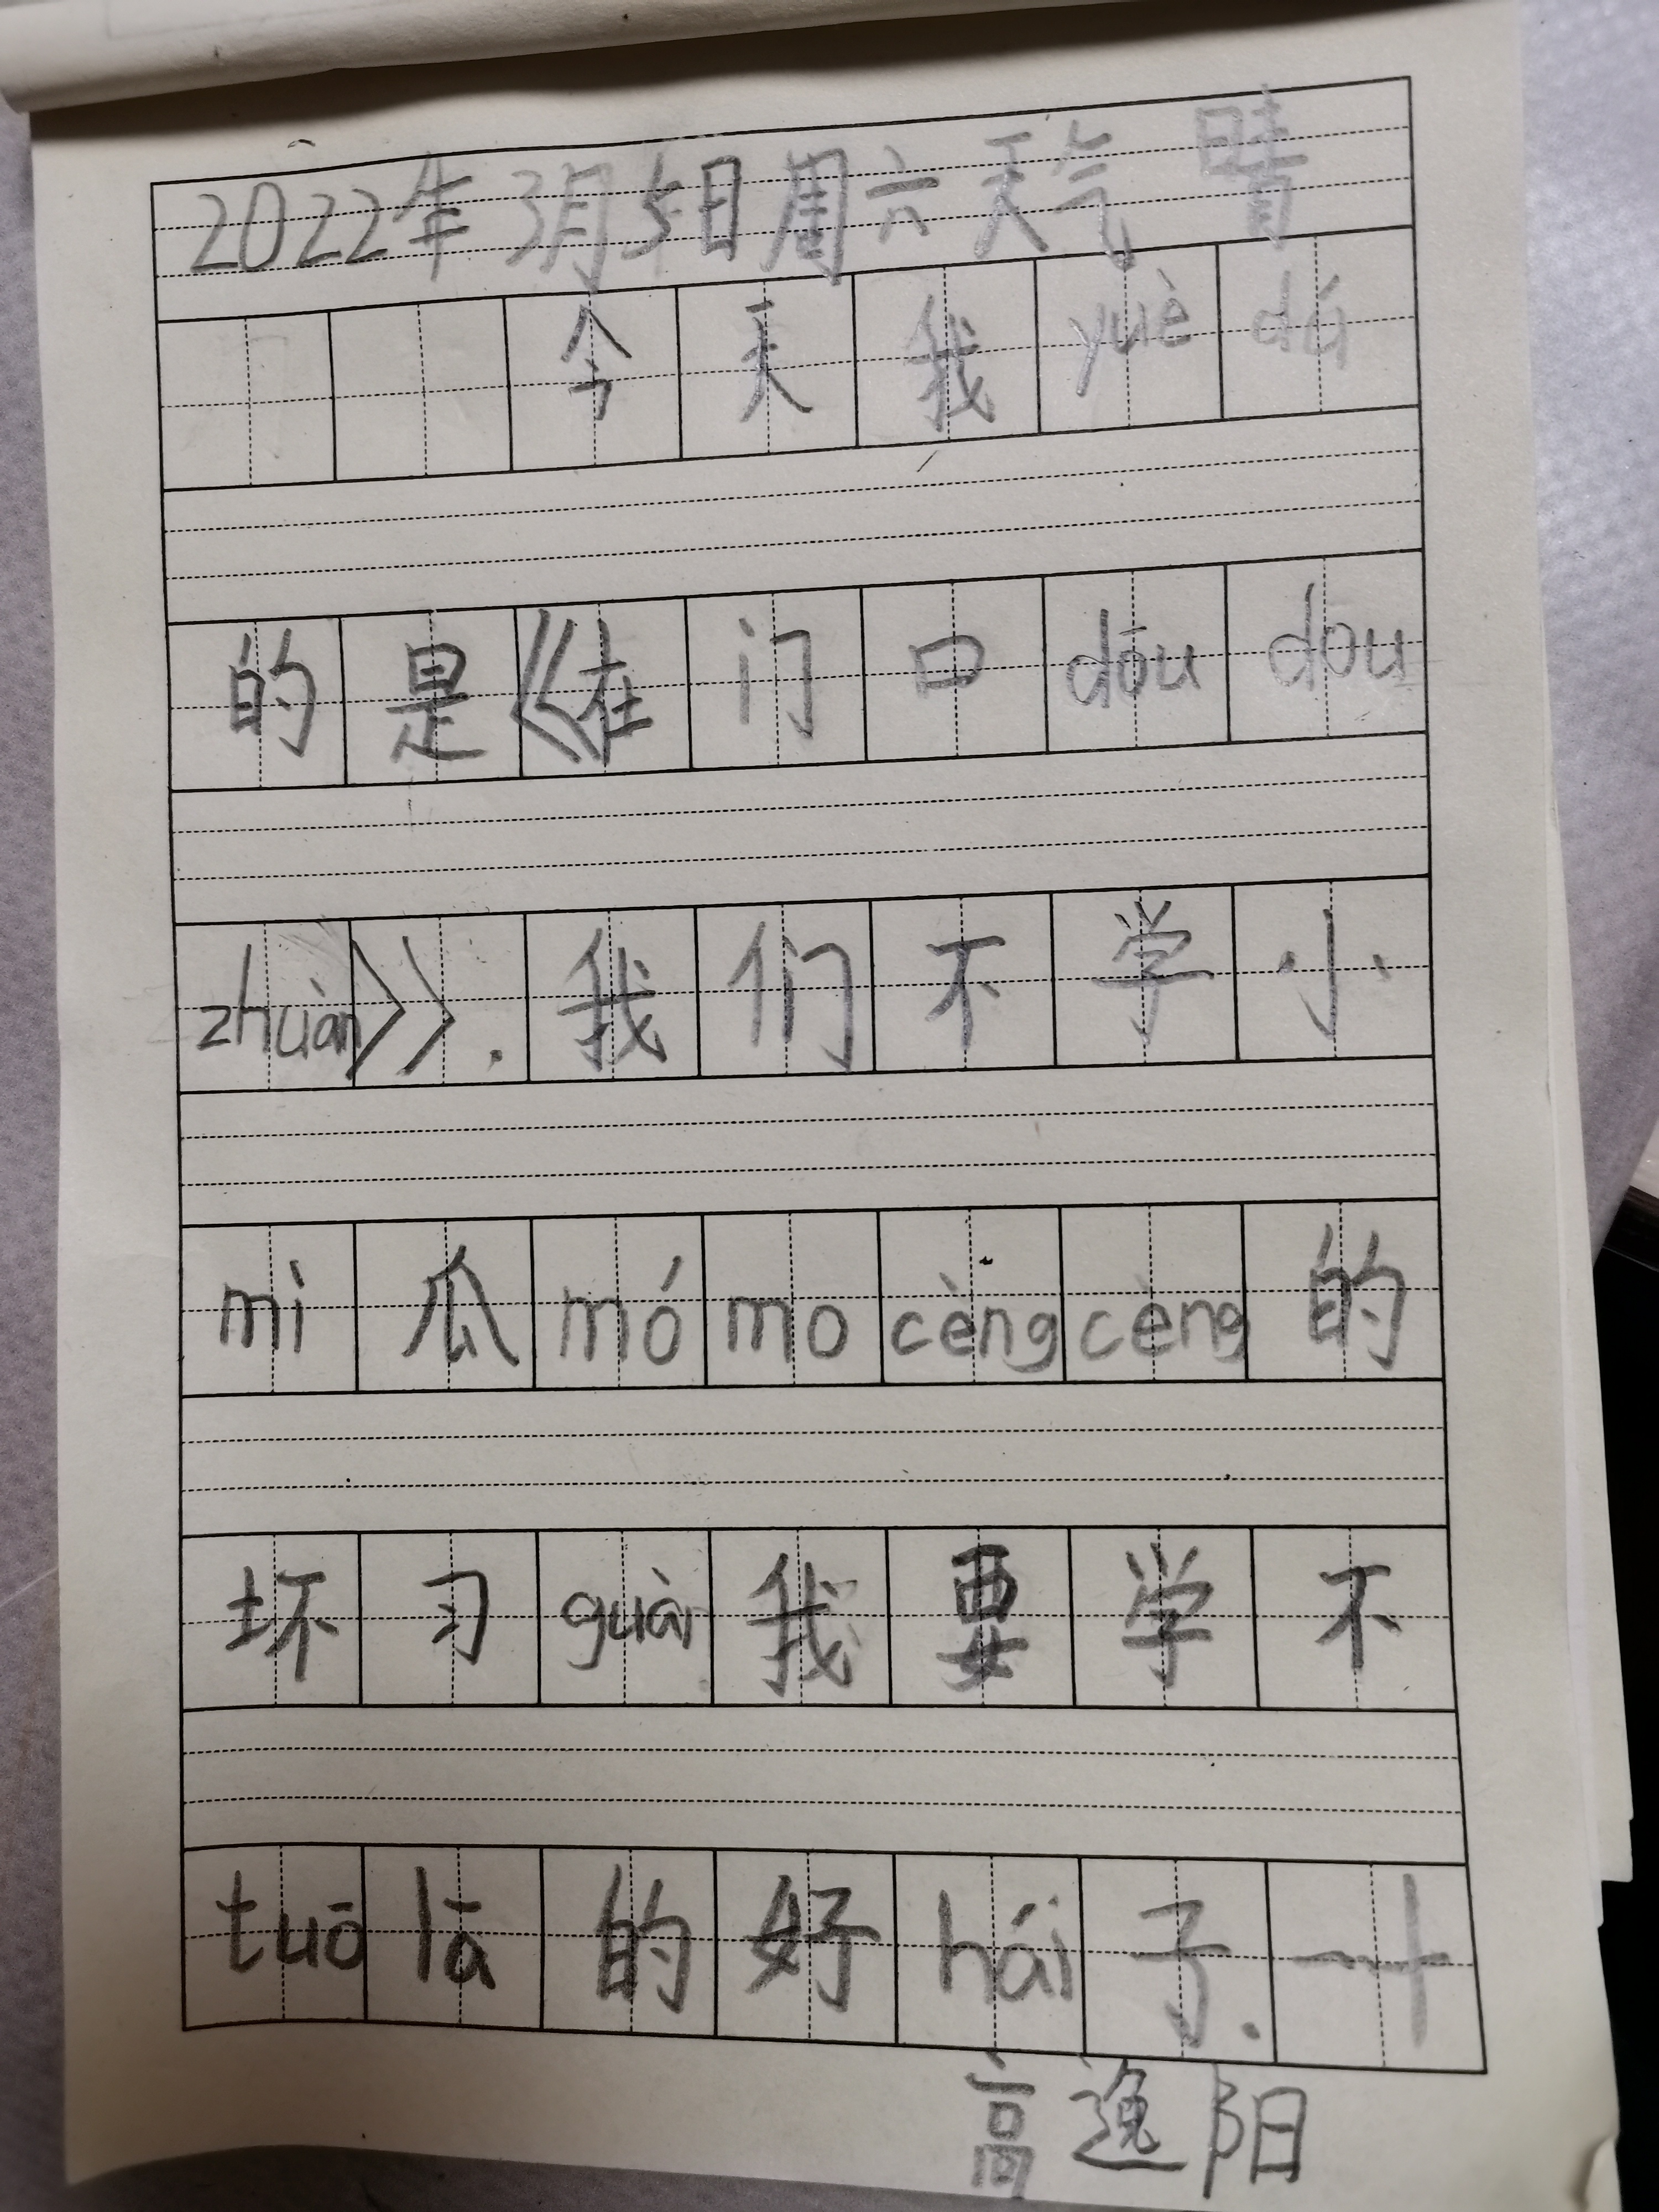 2022年3月5日周六天气晴
今天我yuè dú
的是《在门口dōu dou
zhuàn》.我们不学小
mì瓜mó mo cèng cèng的
坏习guàn我要学不
tuō lā的好hái子.一十
高逸阳